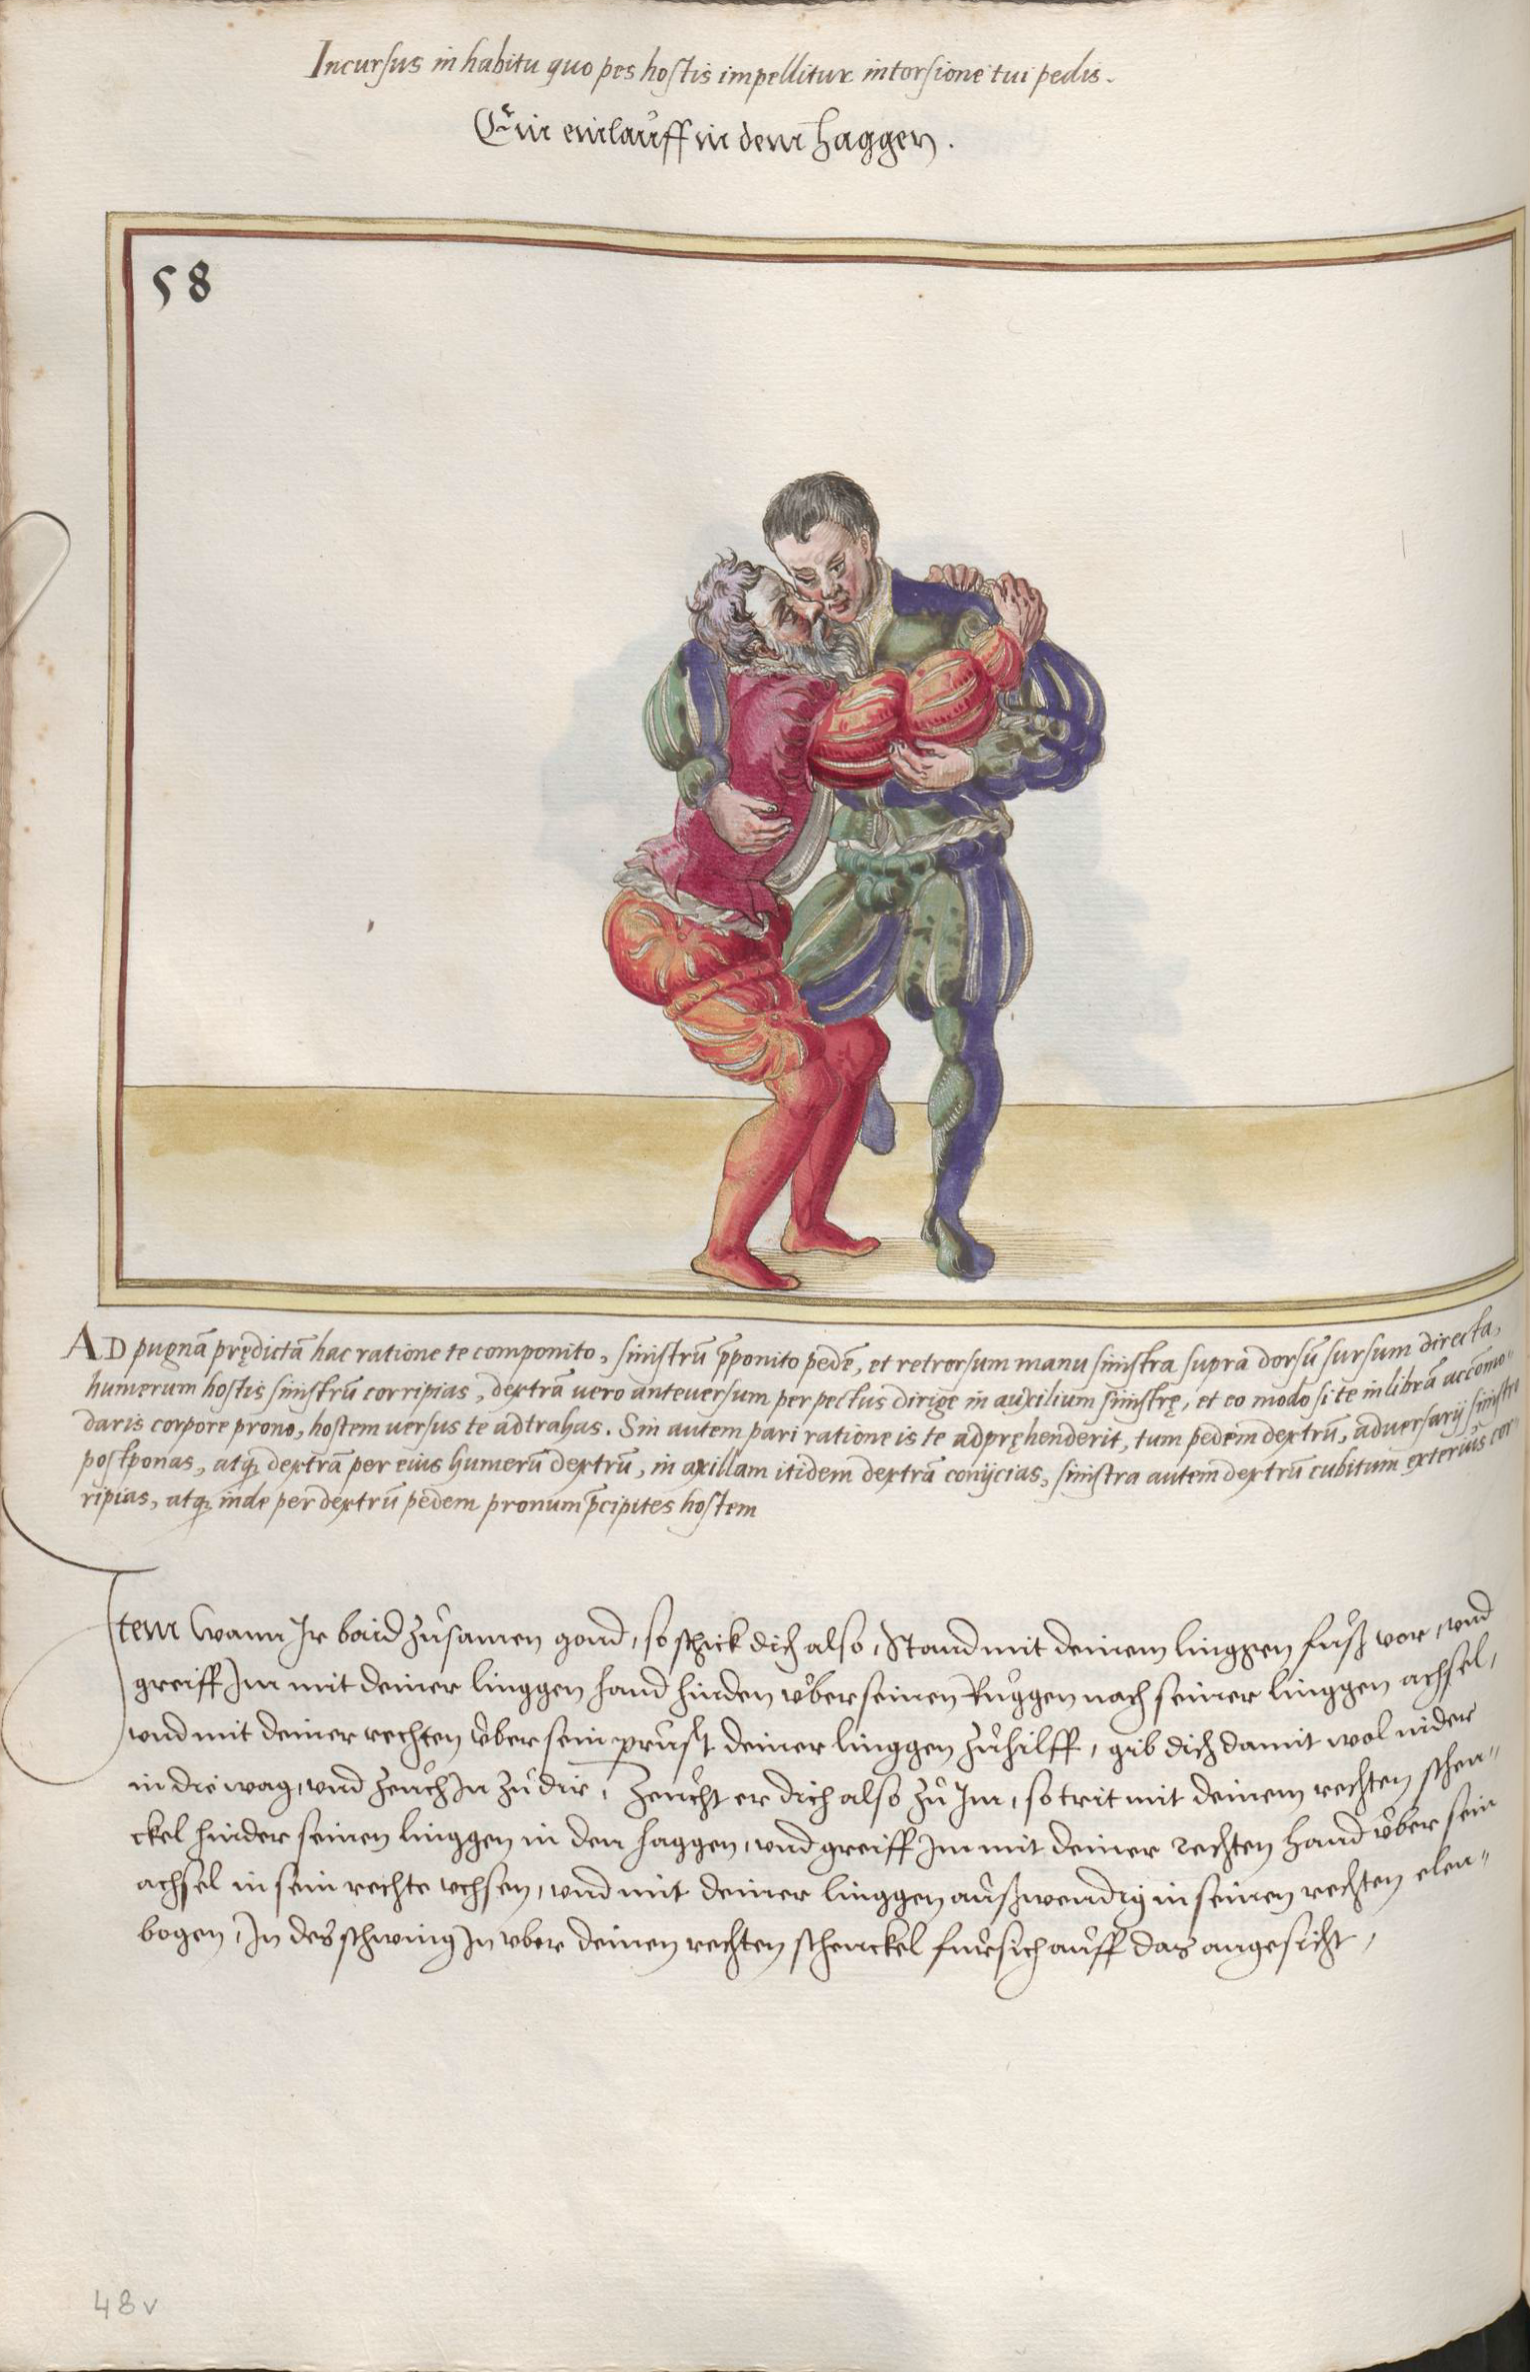 Incursus in habitu quo pes hostis impellitur intorsione tui pedis.
Ein einlauff in dem haggen.
58
AD pugnã prędictã hac ratione te componito, sinistrũ p̄ponito pedẽ, et retrorsum manu sinistra supra dorsũ sursum directa,
humerum hostis sinistrũ corripias, dextrã vero anteversum per pectus dirige in auxilium sinistrę, et eo modo si te in librã accõmo⸗
daris corpore prono, hostem versus te adtrahas. Sin autem pari ratione is te adpręhenderit, tum pedem dextrũ, adversarij sinistro
postponas, atq; dextrã per eius humerũ dextrũ, in axillam itidem dextrã conijcias, sinistra autem dextrũ cubitum exterius cor⸗
ripias, atq; inde per dextrũ pedem pronum p̄cipites hostem
Item wann Ir baid zůsamen gond, so schick dich also, Stand mit deinem linggen fůß vor, vnd
greiff Im mit deiner linggen hand hinden vͤber seinen Ruggen nach seiner linggen achsel,
vnd mit deiner rechten vͤber sein prust deiner linggen zůhilff, gib dich damit wol nider
in die wag, vnd zeuch In zů dir, Zeucht er dich also zů Im, so trit mit deinem rechten schen⸗
ckel hinder seinen linggen in den haggen, vnd greiff Im mit deiner rechten hand vͤber sein
achsel in sein rechte vchsen, vnd mit deiner linggen außwendig in seinen rechten elen⸗
bogen, In des schwing In vber deinen rechten schenckel fürsich auff das angesicht,
48v